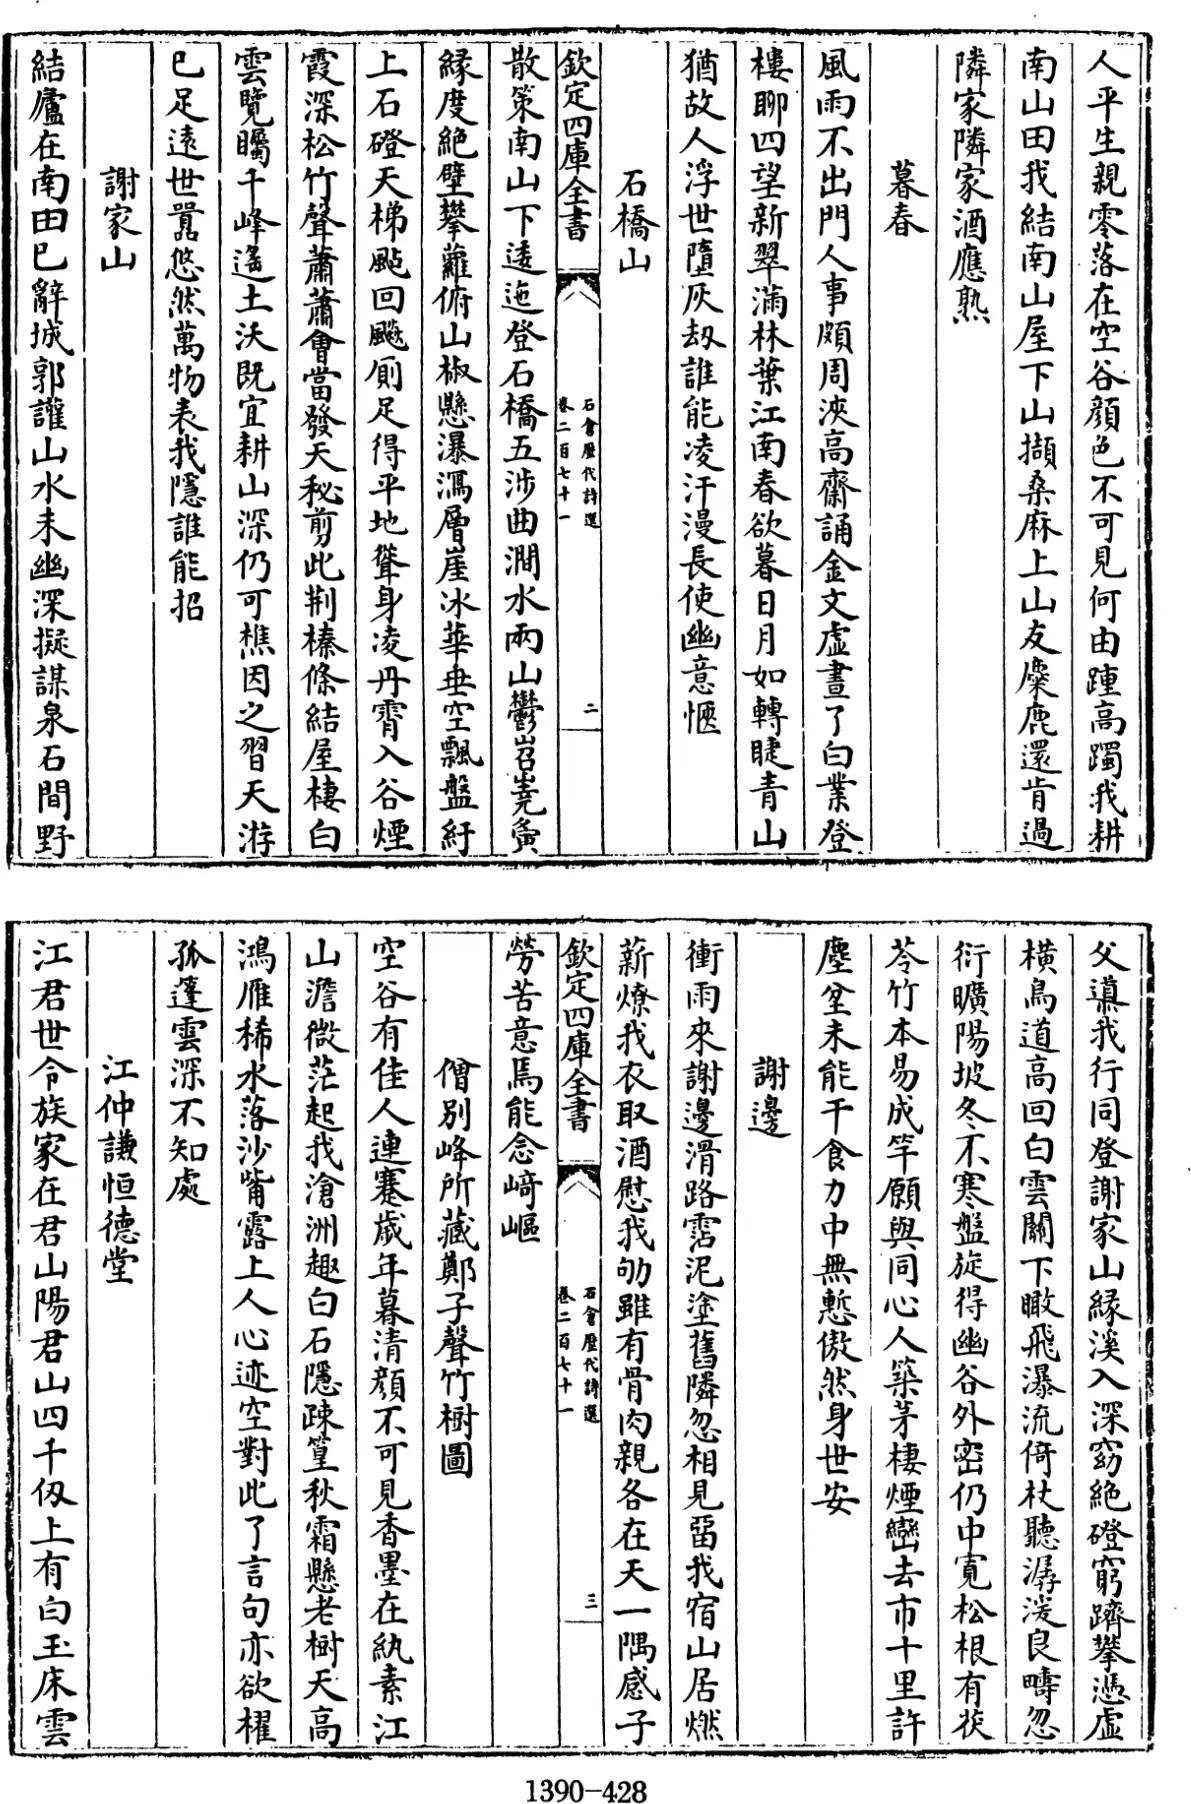 人平生親零落在空谷顏色不可見何由踵高躅我耕
南山田我結南山屋下山擷桑麻上山友麋鹿還肯過
隣家隣家酒應熟
暮春
風雨不出門人事頗周浹高齋誦金文虛晝了白業登
樓聊四望新翠滿林葉江南春欲暮日月如轉睫青山
猶故人浮世墮灰刼誰能凌汗漫長使幽意愜
石橋山
欽定四庫全書
石倉歷代詩選
卷二百七十一
二
散策南山下逶迤登石橋五涉曲澗水兩山鬱岧嶤夤
緣度絶壁攀蘿俯山椒懸瀑瀉層崖冰華垂空飄盤紆
上石磴天梯颭回飈廁足得平地聳身凌丹霄入谷煙
霞深松竹聲蕭蕭會當發天秘剪此荆榛條結屋棲白
雲覽矚千峰遙土沃既宜耕山深仍可樵因之習天游
已足遠世囂悠然萬物表我隱誰能招
謝家山
結廬在南田已辭城郭讙山水未幽深擬謀泉石間野
父導我行同登謝家山緣溪入深窈絶磴窮躋攀憑虛
橫鳥道高回白雲關下瞰飛瀑流倚杖聽潺湲良疇忽
衍曠陽坡冬不寒盤旋得幽谷外密仍中寬松根有茯
苓竹本易成竿願與同心人築茅棲煙巒去市十里許
塵坌未能干食力中無慙傲然身世安
謝邊
衝雨來謝邊滑路霑泥塗舊隣忽相見留我宿山居燃
薪燎我衣取酒慰我劬雖有骨肉親各在天一隅感子
欽定四庫全書
石倉歷代詩選
卷二百七十一
三
勞苦意焉能念崎嶇
僧別峰所藏鄭子聲竹樹圖
空谷有佳人連蹇歲年暮清顏不可見香墨在紈素江
山澹微茫起我滄洲趣白石隱疎篁秋霜懸老樹天高
鴻雁稀水落沙觜露上人心迹空對此了言句亦欲櫂
孤篷雲深不知處
江仲謙恒德堂
江君世令族家在君山陽君山四千仭上有白玉床雲
1390-428